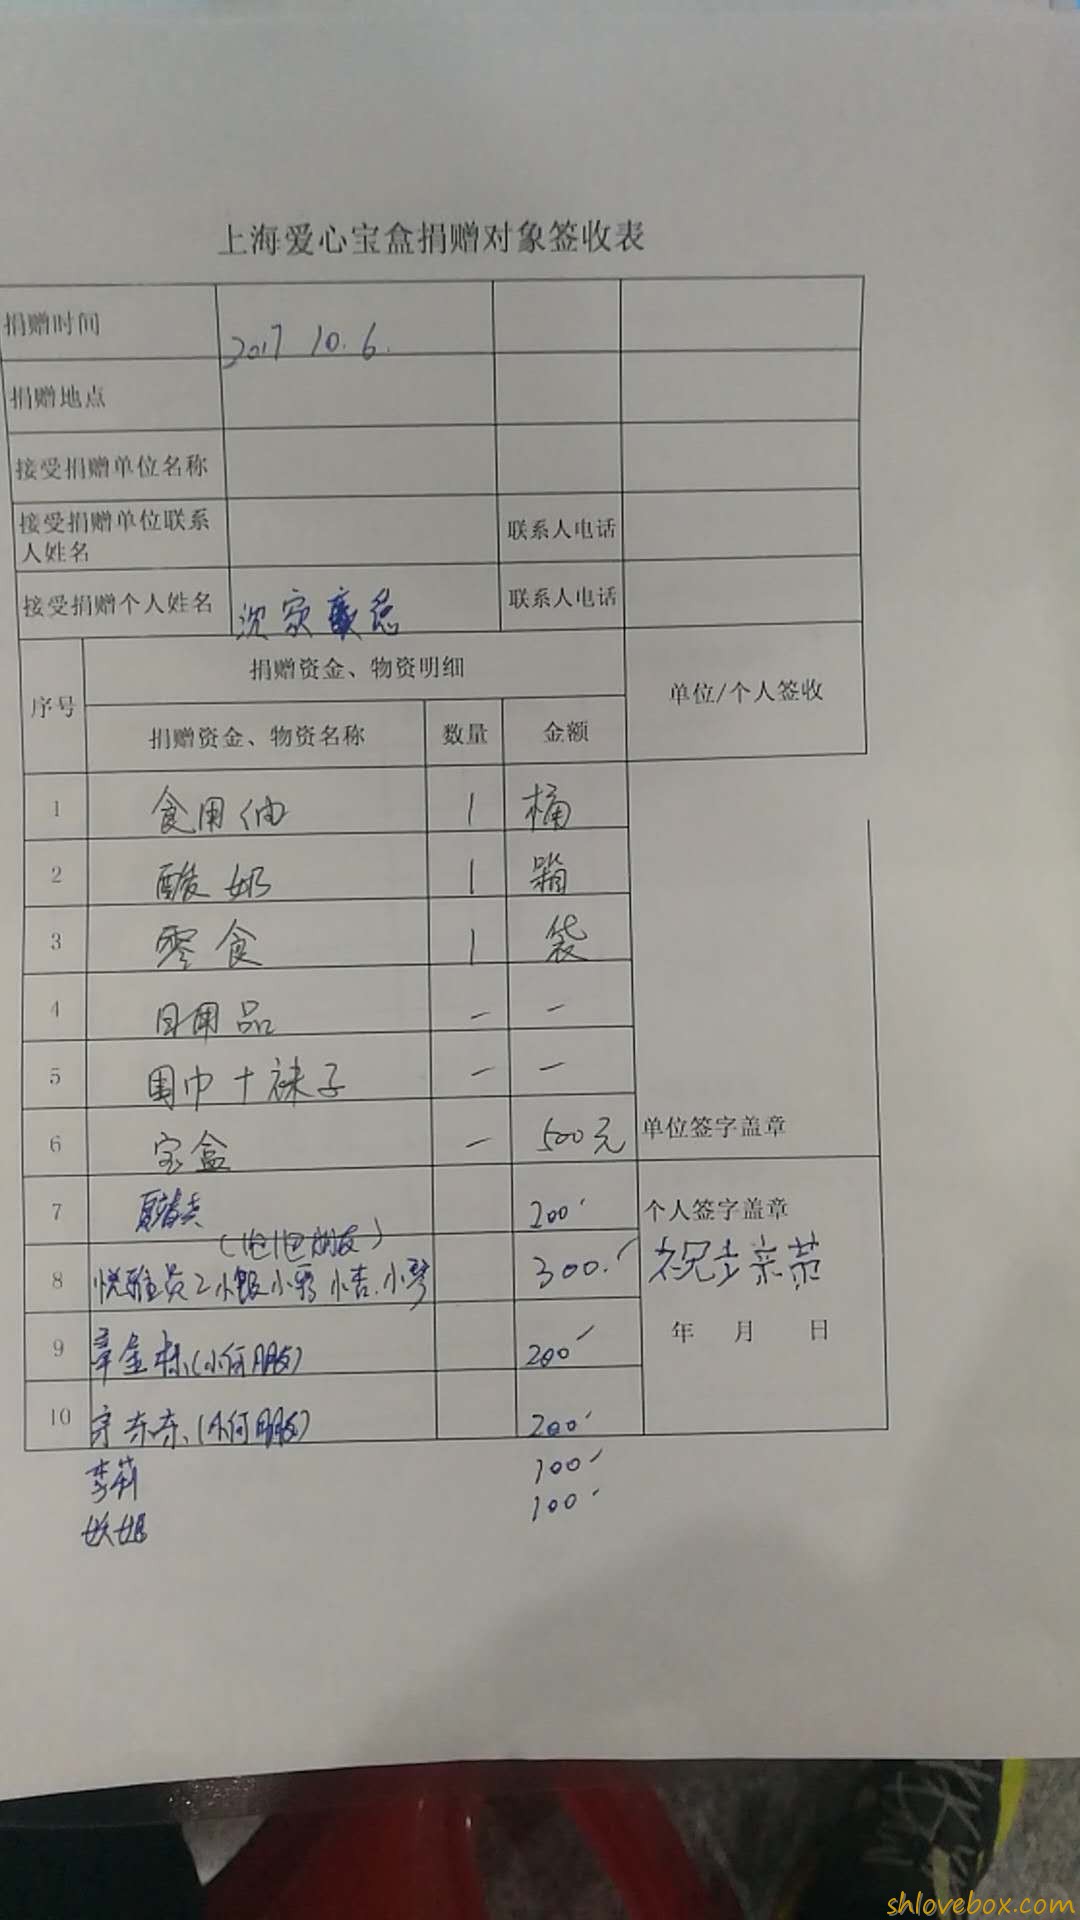 上海爱心宝盒捐赠对象签收表
捐赠时间 2017 10.6.
捐赠地点
接受捐赠单位名称
接受捐赠单位联系人姓名 联系人电话
接受捐赠个人姓名 沈家 联系人电话
序号 捐赠资金、物资明细 单位/个人签收
捐赠资金、物资名称 数量 金额
1 食用油 1 桶
2 酸奶 1 箱
3 零食 1 袋
4 日用品 一 一
5 围巾+袜子 一 一
6 宝盒 一 500元 单位签字盖章
7 200 个人签字盖章
(包包朋友)
8 悦雅员工小银 小 小吉.小琴 300.
年 月 日
9 章金栋(小何朋友) 200
10 东东(小何朋友) 200
李莉 100
妖姐 100
shlovebox.com